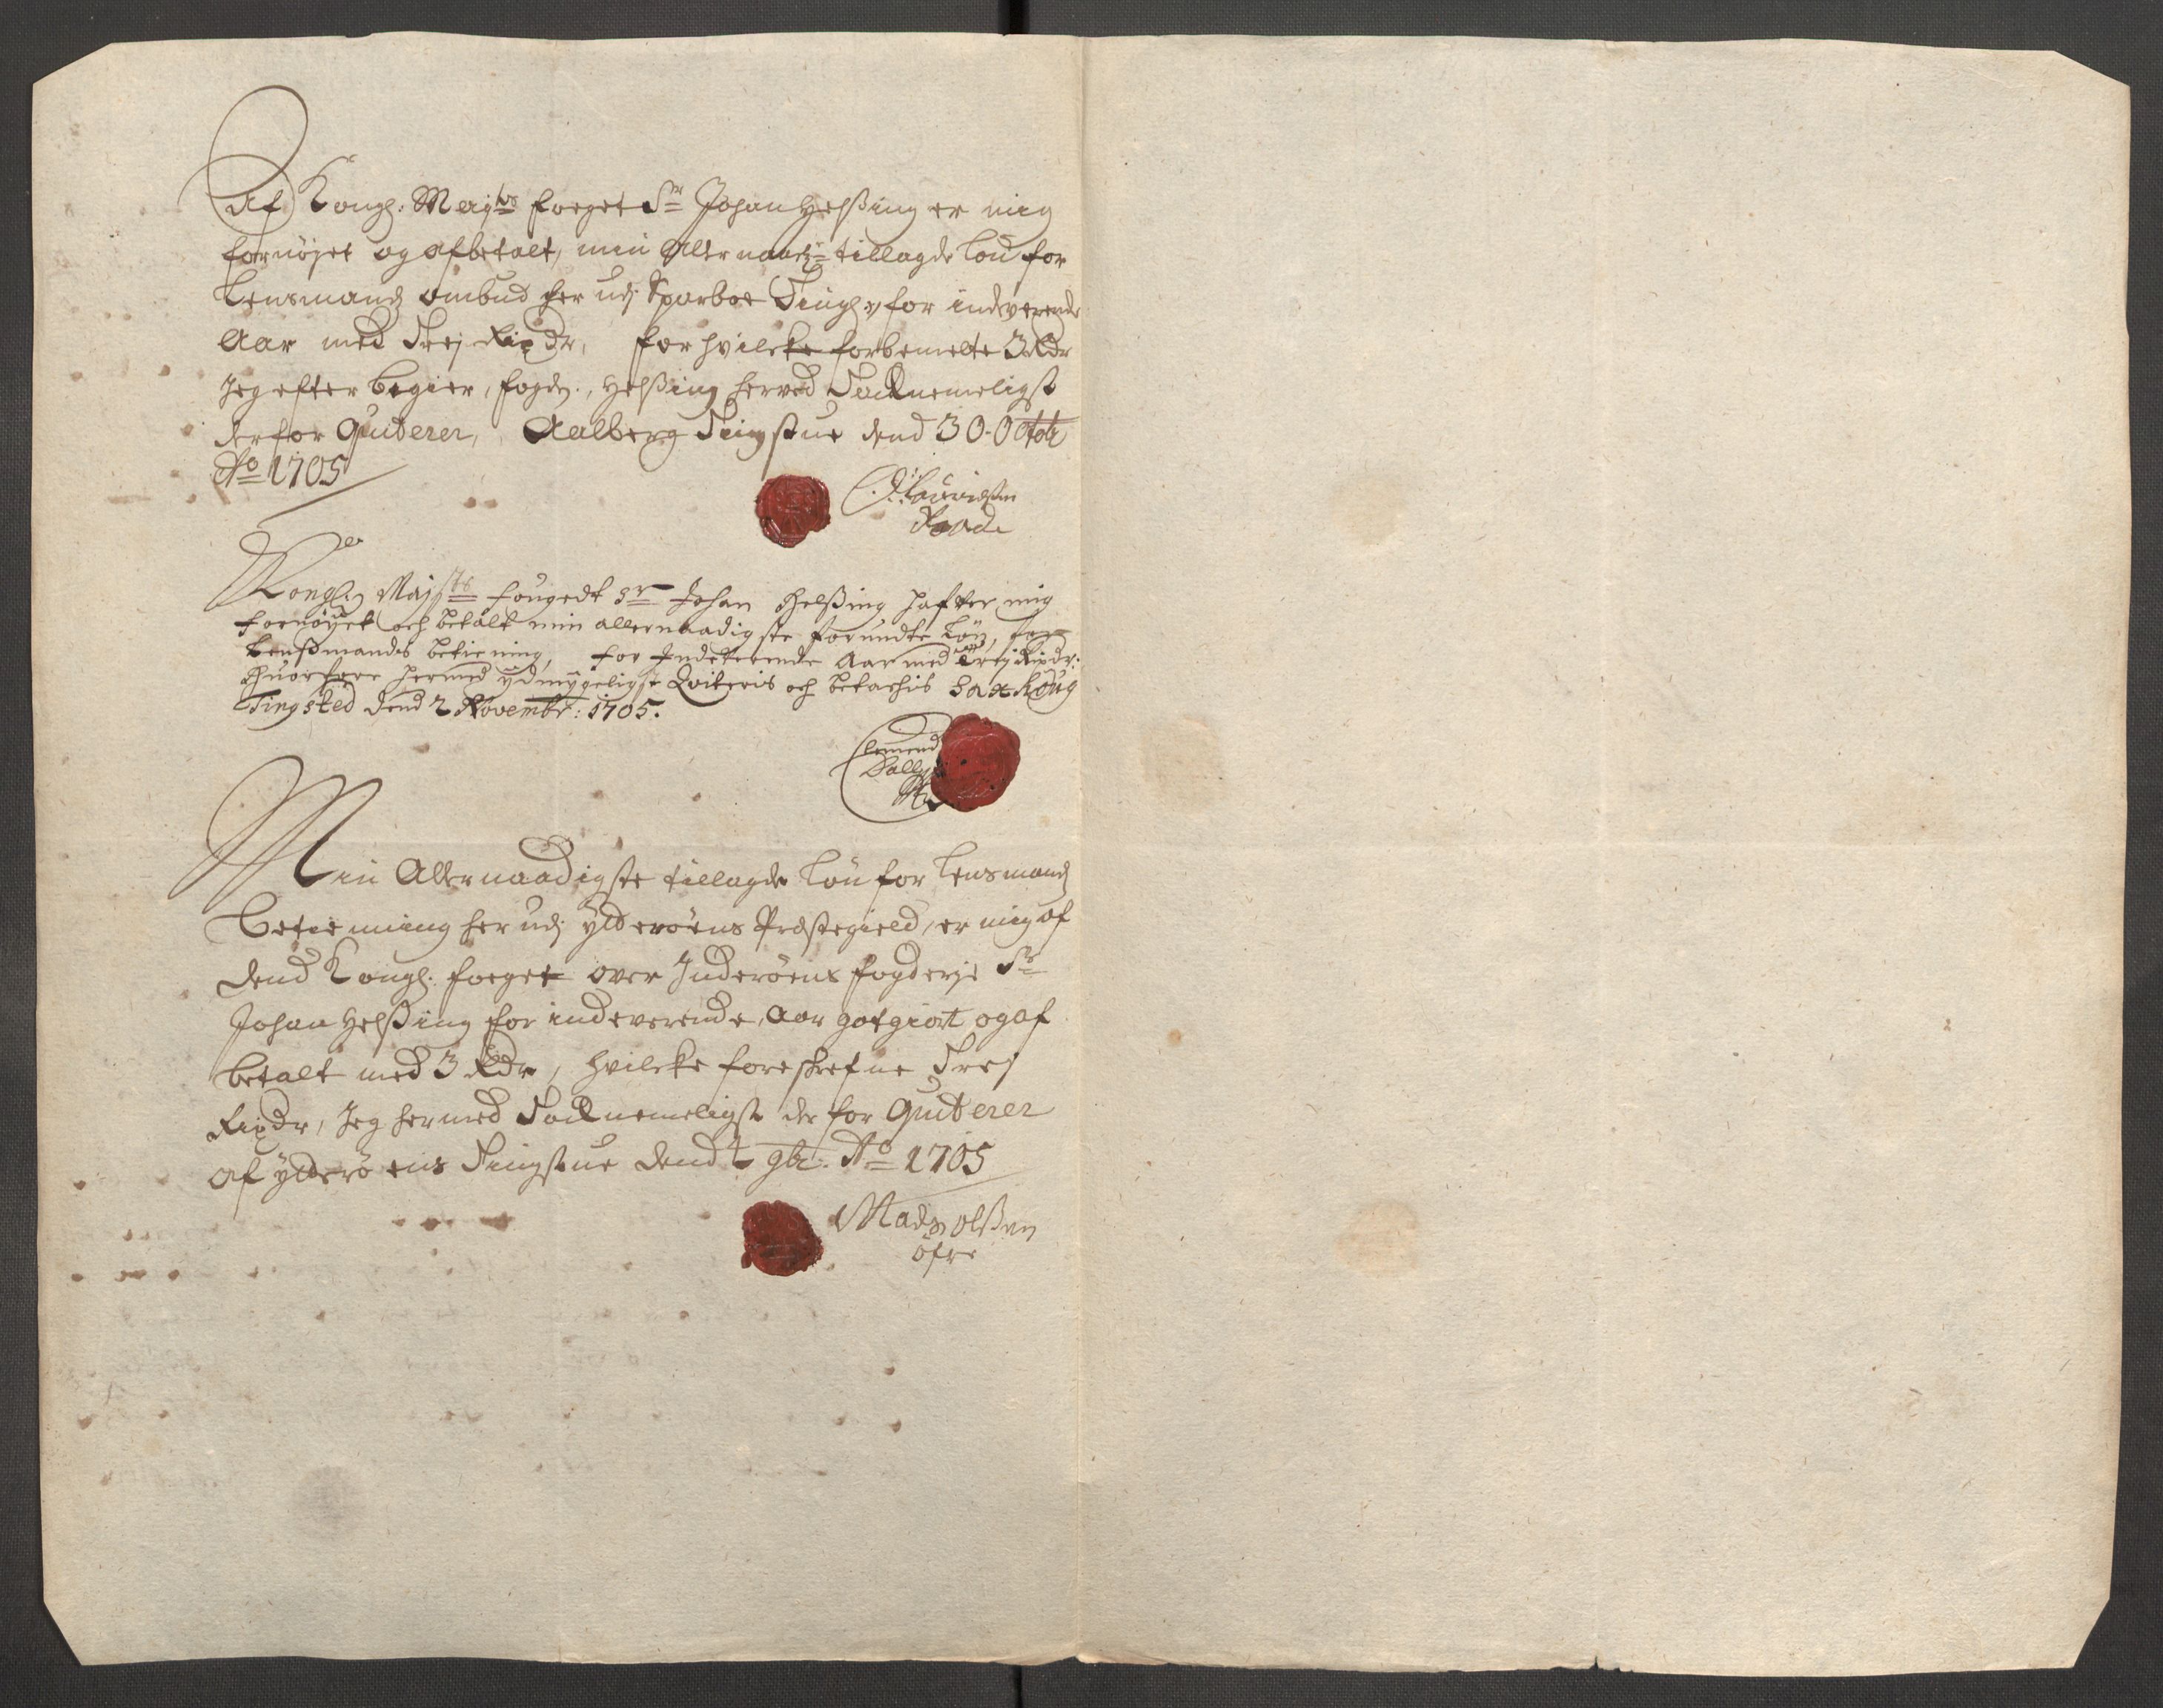 Af Kongl: Mayts foeget Sr Johan Helßing er mig
fornøyet og afbetalt, min Allernaadigste tillagde Løn for
Lensmands ombud her udj Sparboe Tinglag for indeverende
Aar med Trej Rixdr, for hvilcke forbemelte 3 Rdr
Jeg efter begier, fogden, Helßing herved Tacknemeligst
derfor Quiterer, Aalberg Tingstue dend 30 Octobr
Ao 1705
Lauridsen
Kongl: Mayts fougedt Sr Johan Helßing hafver mig
fornøyet och betalt min allernaadigste forundte Løn, for
Lenßmandes betiening, for Indeverende Aar med Trej Rixdr:
Huorfore hermed ydmygeligst Qviteris och betachis Saxhoug
Tingsted dend 2 Novembr: 1705.
Clemend
Min Allernaadigste tillagde Løn for Lensmands
betiening her udj Ytterøens Præstegield, er mig af
dend Kongl: foeget over Inderøens fogderje Sr
Johan Helßing for indeverende Aar godgiort og af
betalt med 3 Rdr, hvilcke foreskrefne Trej
Rixdr, Jeg hermed Tacknemeligst derfor Quiterer
af Ytterøens Tingstue dend 9br: Ao 1705
Mads Olßen
øfre